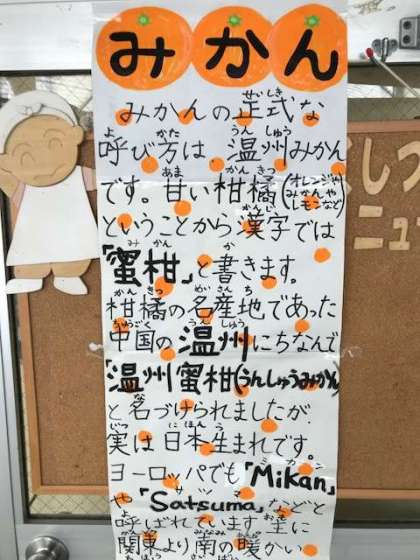 みかん
みかんの正式な
呼び方は 温州みかん
です。甘い柑橘(オレンジやみかんやレモンなど)
ということから漢字では
「蜜柑」と書きます。
柑橘の名産地であった
中国の温州にちなんで
「温州蜜柑(うんしゅうみかん)
と名づけられましたが、
実は日本生まれです。
ヨーロッパでも「Mikan」
や「Satsuma」などと
呼ばれています。主に
関東より南の暖かい